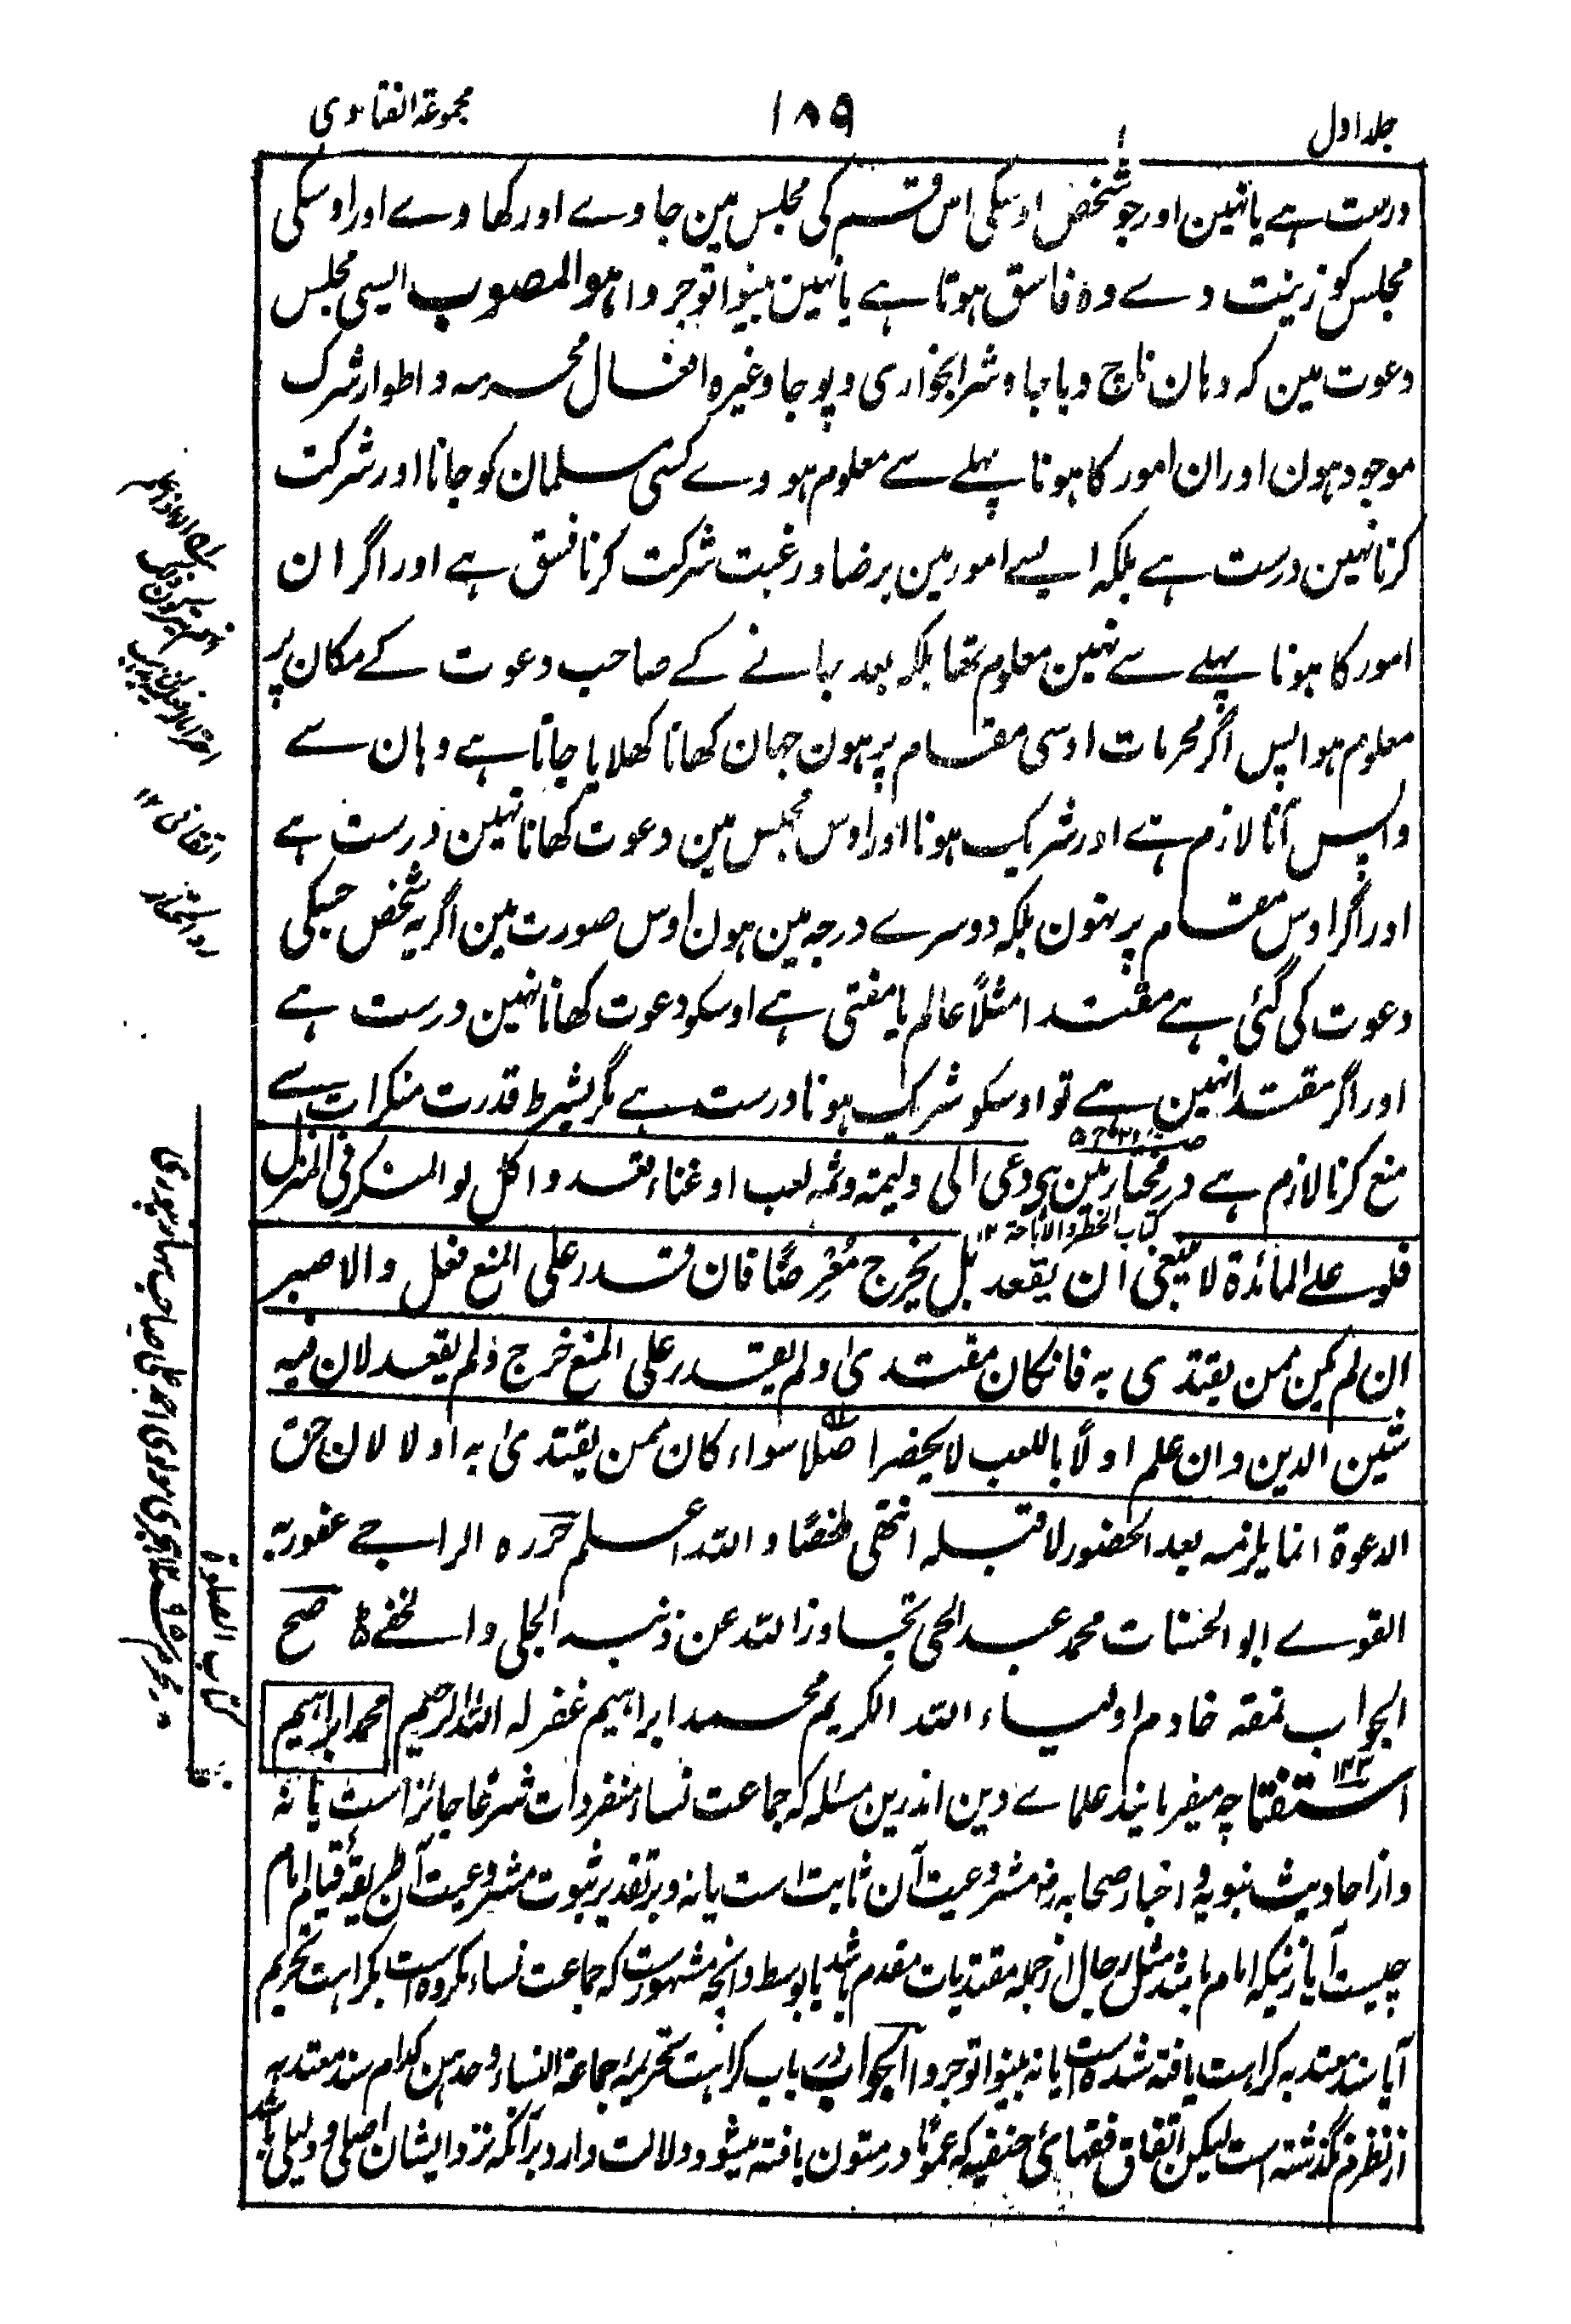 جلد اول
۱۸۹
مجموعۃ الفتاوی
درست ہے یا نہین اور جو شخص اوسکی اس قسم کی مجلس مین جاوے اور کھاوے اور اوسکی
مجلس کو زینت دے وہ فاسق ہوتا ہے یا نہین بینوا توجروا ہو المصوب ایسی مجلس
دعوت مین کہ وہان ناچ و باجا و شرابخواری و پوجا وغیرہ افعال محرمہ و اطوار شرک
موجود ہون اور ان امور کا ہونا پہلے سے معلوم ہووے کسی مسلمان کو جانا اور شرکت
کرنا نہین درست ہے بلکہ ایسے امور مین برضا و رغبت شرکت کرنا فسق ہے اور اگر ان
امور کا ہونا پہلے سے نہین معلوم تھا بلکہ بعد جانے کے صاحب دعوت کے مکان پر
معلوم ہوا پس اگر محرمات اوسی مقام پر ہون جہان کھانا کھلایا جاتا ہے وہان سے
واپس آنا لازم ہے اور شریک ہونا اور اوس مجلس مین دعوت کھانا نہین درست ہے
اور اگر اوس مقام پر نہون بلکہ دوسرے درجہ مین ہون اوس صورت مین اگر یہ شخص جسکی
دعوت کی گئی ہے مقتدا مثلاً عالم یا مفتی ہے اوسکو دعوت کھانا نہین درست ہے
اور اگر مقتدا نہین ہے تو اوسکو شریک ہونا درست ہے مگر بشرط قدرت منکرات سے
منع کرنا لازم ہے در مختار مین ہی دعی الی ولیمۃ وثمہ لعب او غناء قعد واکل لو المنکر فی المنزل
کتاب الحظر والاباحۃ ۱۲
فلو علی المائدۃ لا ینبغی ان یقعد بل یخرج مُعْرِضًا فان قدر علی المنع فعل والا صبر
ان لم یکن ممن یقتدی بہ فانکان مقتدیٰ ولم یقدر علی المنع خرج ولم یقعد لان فیہ
شین الدین وان علم اولًا باللعب لا یحضر اصلًا سواء کان ممن یقتدیٰ بہ اولا لان حق
الدعوۃ انما یلزمہ بعد الحضور لا قبلہ انتھی ملخصًا واللہ اعلم حررہ الراجے عفو ربہ
القوے ابو الحسنات محمد عبد الحی تجاوز اللہ عن ذنبہ الجلی والخفے صح
الجواب نمقہ خادم اولیاء اللہ الکریم محمد ابراہیم غفر لہ اللہ الرحیم
محمد ابراہیم
استفتا چہ میفرمایند علماے دین اندرین مسئلہ کہ جماعت نساء منفردات شرعًا جائز است یا نہ
واز احادیث نبویہ و اخبار صحابہ رض مشروعیت آن ثابت است یا نہ و بر تقدیر ثبوت مشروعیت آن طریقۂ قیام امام
چیست آیا زنیکہ امام باشد مثل رجال از جملہ مقتدیات مقدم باشد یا بوسط و انچہ مشہور ست کہ جماعت نساء مکروہ است بکراہت تحریم
آیا سند معتد بہ کراہت یافتہ شدہ است یا نہ بینوا توجروا الجواب در باب کراہت تحریمۂ جماعۃ النساء وحدہن کدام سند معتد بہ
از نظرم نگذشتہ است لیکن اتفاق فقہائ حنفیہ کہ عمومًا در متون یافتہ میشود دلالت دارد برانکہ نزد ایشان اصلی و دلیلی باشد
رد المحتار
کتاب الصلوۃ